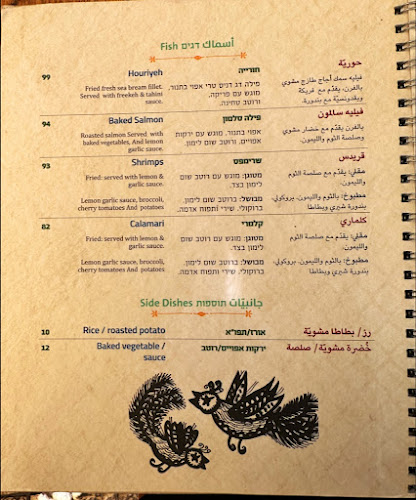 أسماك דגים Fish
99 Houriyeh חורייה حوريّة
Fried fresh sea bream fillet. Served with freekeh & tahini sauce.
פילה דג דניס טרי אפוי בתנור, מוגש עם פריקה, ורוטב טחינה.
فيليه سمك أجاج طازج مشوي بالفرن، يقدّم مع فريكة وبقدونسيّة مع بندورة.
94 Baked Salmon פילה סלמון فيليه سالمون
Roasted salmon Served with baked vegetables, And lemon garlic sauce.
אפוי בתנור, מוגש עם ירקות אפויים, ורוטב שום לימון.
بالفرن، يقدّم مع خضار مشوي وصلصة الثوم والليمون.
93 Shrimps שרימפס قريدس
Fried: served with lemon & garlic sauce.
מטוגן: מוגש עם רוטב שום לימון בצד.
مقلي: يقدّم مع صلصة الثوم والليمون.
Lemon garlic sauce, broccoli, cherry tomatoes And potatoes
מבושל: ברוטב שום לימון, ברוקולי, שירי ותפוח אדמה.
مطبوخ: بالثوم والليمون، بروكولي، بندورة شيري وبطاطا
82 Calamari קלמרי كلماري
Fried: served with lemon & garlic sauce.
מטוגן: מוגש עם רוטב שום לימון בצד.
مقلي: يقدّم مع صلصة الثوم والليمون.
Lemon garlic sauce, broccoli, cherry tomatoes And potatoes
מבושל: ברוטב שום לימון, ברוקולי, שירי ותפוח אדמה.
مطبوخ: بالثوم والليمون، بروكولي، بندورة شيري وبطاطا
جانبيّات תוספות Side Dishes
10 Rice / roasted potato אורז/תפו״א رز/ بطاطا مشويّة
12 Baked vegetable / sauce ירקות אפויים/רוטב خُضرة مشويّة/ صلصة